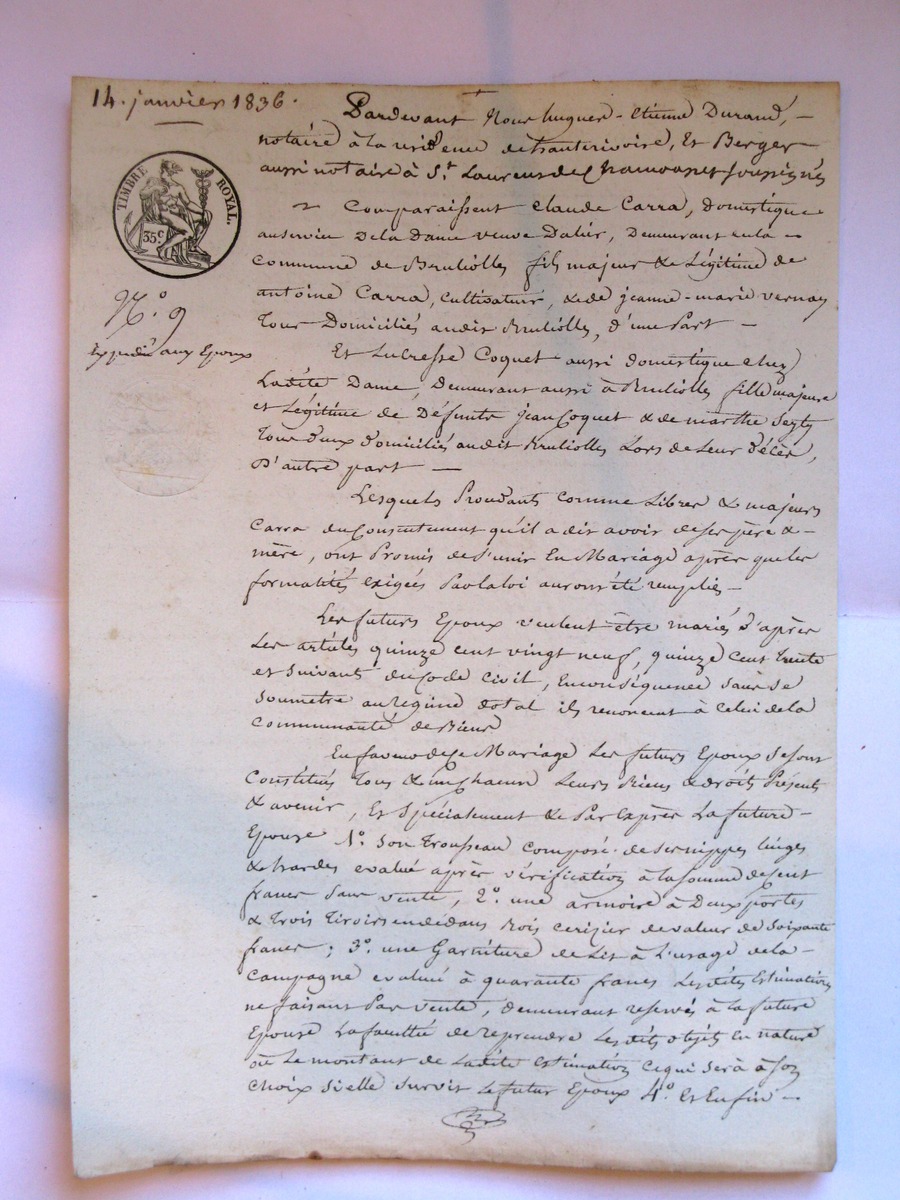 14. janvier 1836.
TIMBRE ROYAL.
35.c
N.o 9
Expédié aux Epoux
Pardevant Nous hugues-Etienne Durand, -
notaire à la residence de hauterivoire, Et Berger
aussi notaire à St. Laurent de Chamousset soussignés
Comparaissent Claude Carra, Domestique
au service De la Dame veuve Dalier, Demeurant en la -
Commune de Brullioles fils majeur & Légitime de
antoine Carra, Cultivateur, & de jeanne-marie vernay
Tous Domiciliés audit Brullioles, d'une Part -
Et Lucresse Coquet aussi domestique chez
Ladite Dame, Demeurant aussi à Brullioles fille majeure
et Légitime de Défunts jean Coquet & de marthe
Tous Deux Domiciliés audit Brullioles Lors de Leur Décès,
D'autre part -
Lesquels Procédants comme Libres & majeurs
Carra du Consentement qu'il a dit avoir de ses père & -
mère, ont Promis de s'unir En Mariage après que les
formalités exigées Par la loi auront été remplies -
Les futurs Epoux veulent être mariés d'après
Les articles quinze cent vingt neuf, quinze Cent trente
et suivants du Code Civil, En conséquence sans se
soumetre au régime dotal ils renoncent à celui de la
Communauté de Biens
En faveur de Ce Mariage Les futurs Epoux se sont
Constitués Tous & un chacun Leurs Biens & droits Présents
& avenir, Et Spécialement & Par Exprès La future -
Epouse 1.o Son Trousseau composé de ses nippes linges
& hardes evalué après vérification à la somme de cent
francs Sans vente, 2.o une armoire à Deux portes
& Trois Tiroirs en dédans Bois cerisier de valeur de Soixante
francs; 3.o une Garniture de Lit à L'usage de la -
Campagne evalué à quarante francs Lesdites Estimations
ne faisant Pas vente, demeurant reservés à la future
Epouse La faculté de reprendre Lesdits objets En nature
où Le montant de Ladite Estimation Ce qui sera à son
Choix si elle survit Le futur Epoux 4.o Et Enfin -